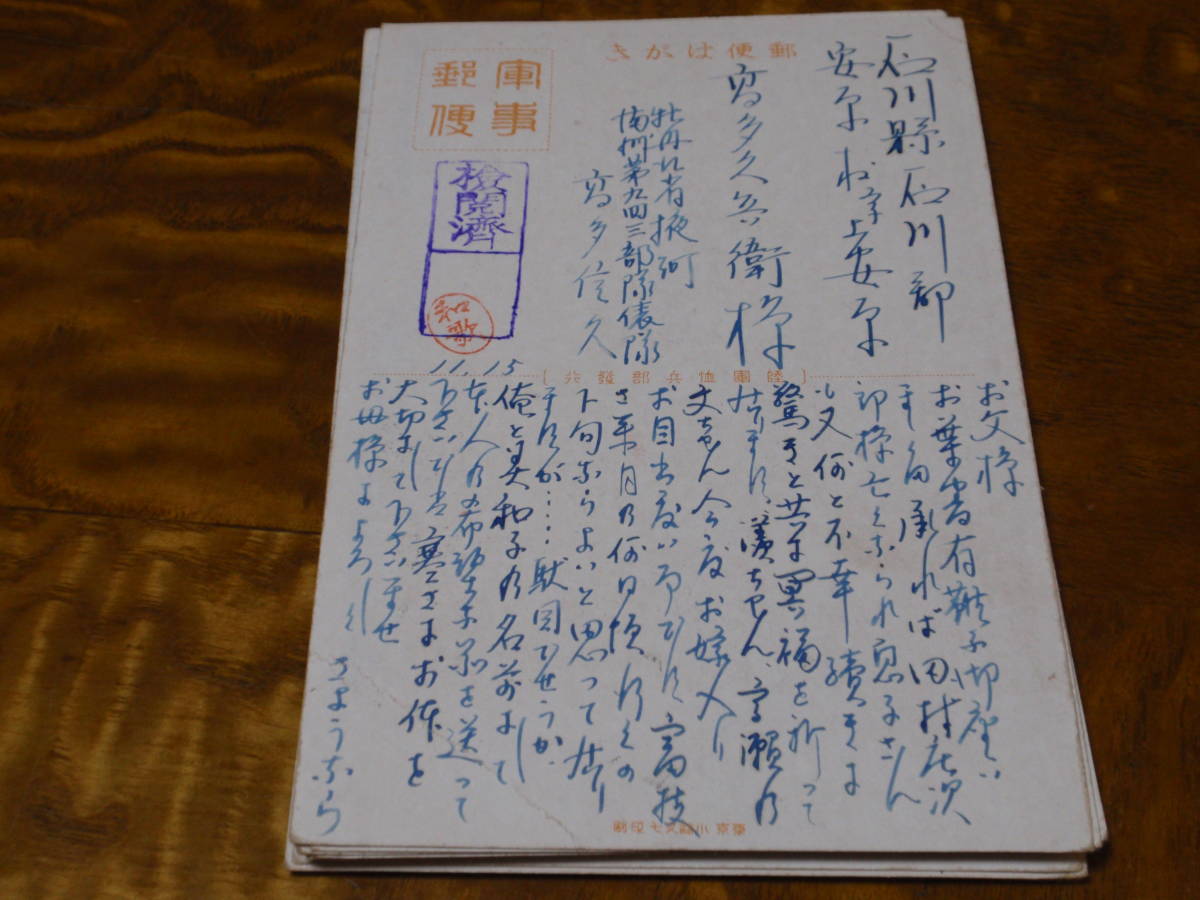 郵便はがき
軍事
郵便
検閲済
和歌
石川縣石川郡
安原村字上安原
高多久兵衛様
牡丹江省掖河
満州第九四三部隊俵隊
高多信久
陸軍恤兵部發行
11.15
お父様
お葉書有難う御座い
ます 承れば田村庄次
郎様亡くなられ息子さん
も又何と不幸續きよ
驚きと共に冥福を祈って
居ります、 ちやん、高瀬の
文ちやん今度お嫁入り
お目出度い事です
来月の何日頃行くの
下旬ならよいと思って居り
ますが・・・・駄目でせうか
俺と美和子の名前にして
本人の希望 を送って
下さい では寒さにお体を
大切にして下さいませ
お母様によろしく さようなら
東京 印刷